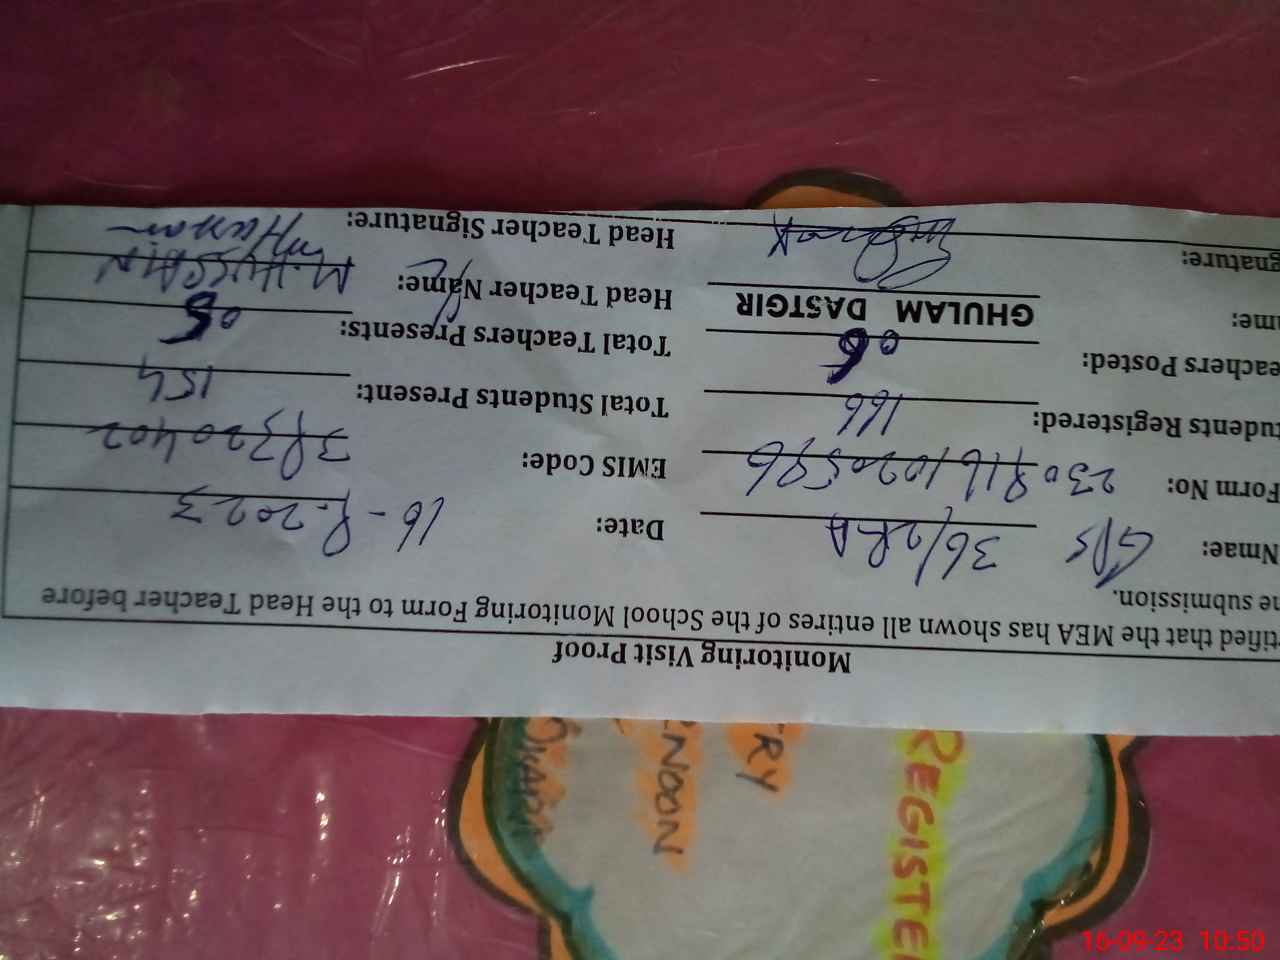 Monitoring Visit Proof
tified that the MEA has shown all entires of the School Monitoring Form to the Head Teacher before
ne submission.
Nmae: GPS 36/2RA Date: 16-9-2023
Form No: EMIS Code: 39320402
tudents Registered: 166 Total Students Present: 154
eachers Posted: 05 Total Teachers Presents: 05
ame: GHULAM DASTGIR Head Teacher Name: M. HUSSAIN
gnature: Head Teacher Signature:
REGISTE
TRY
NOON
OKARA
16-09-23 10:50